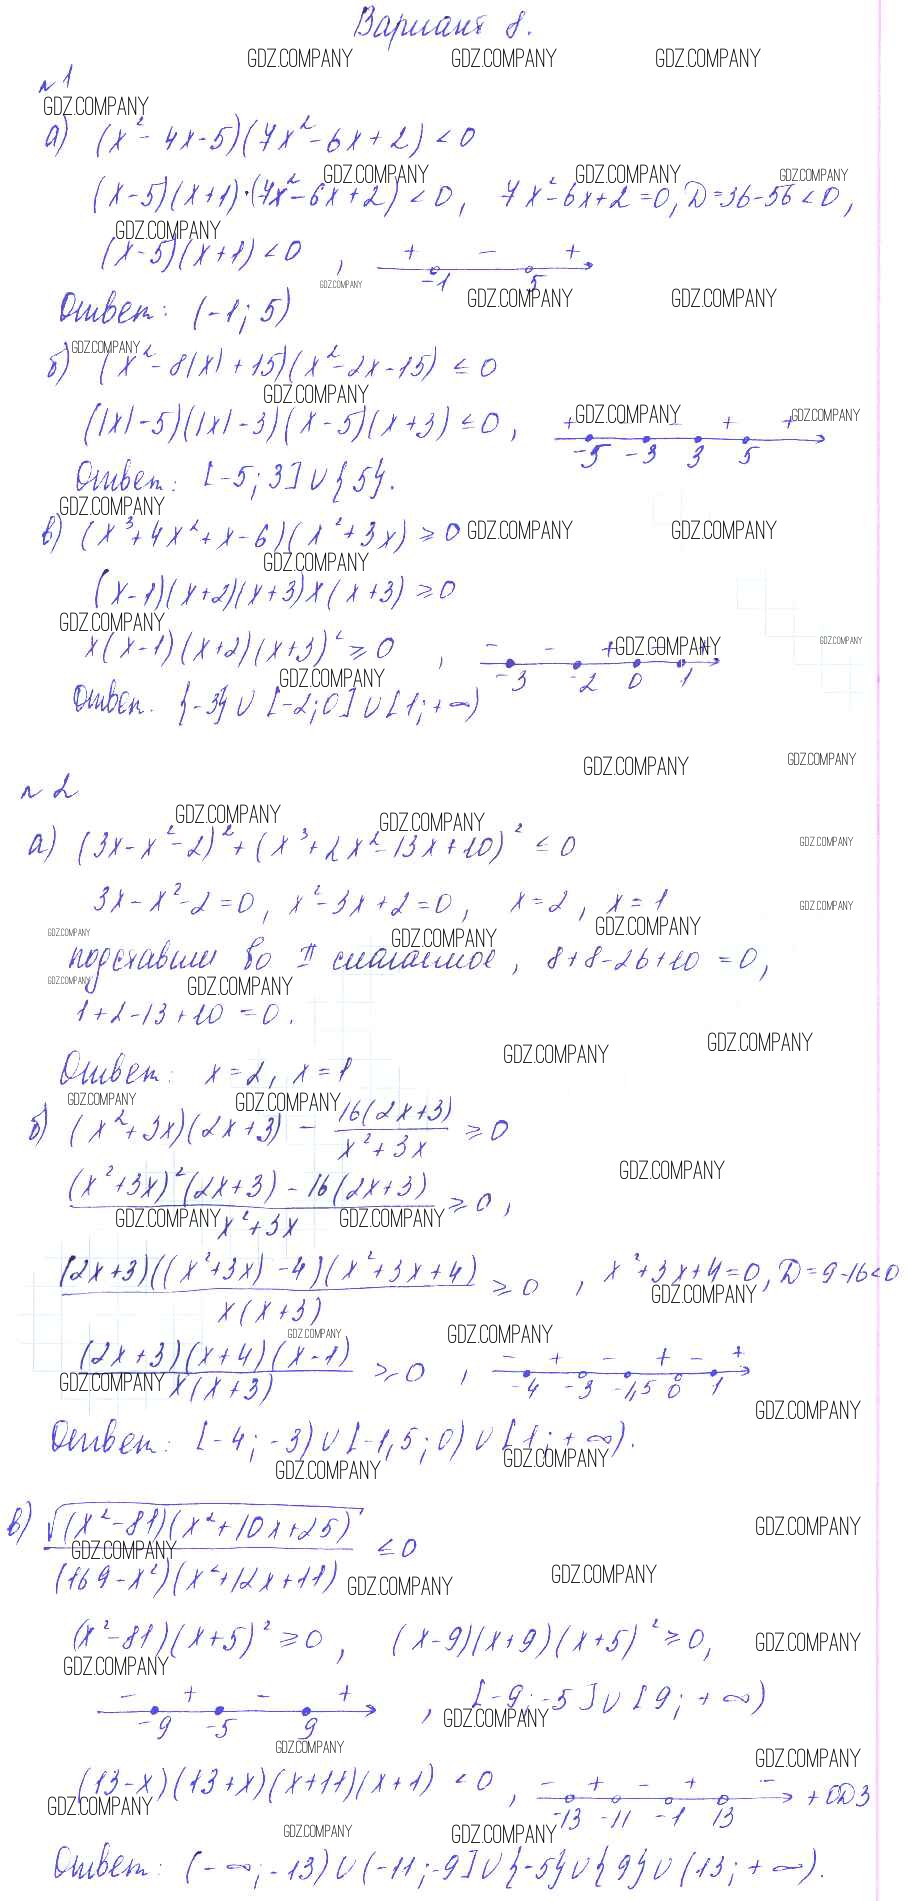 Вариант 8.
GDZ.COMPANY GDZ.COMPANY GDZ.COMPANY
№1
GDZ.COMPANY
а) (x² - 4x - 5)(7x² - 6x + 2) < 0
GDZ.COMPANY GDZ.COMPANY GDZ.COMPANY
(x-5)(x+1)·(7x² - 6x + 2) < 0, 7x² - 6x + 2 = 0, D = 36 - 56 < 0,
GDZ.COMPANY
(x-5)(x+1) < 0, + - +
-1 5
GDZ.COMPANY GDZ.COMPANY GDZ.COMPANY
Ответ: (-1; 5)
GDZ.COMPANY
б) (x² - 8|x| + 15)(x² - 2x - 15) ≤ 0
GDZ.COMPANY GDZ.COMPANY GDZ.COMPANY
(|x| - 5)(|x| - 3)(x - 5)(x + 3) ≤ 0, + - + +
-5 -3 3 5
Ответ: [-5; 3] ∪ {5}.
GDZ.COMPANY
в) (x³ + 4x² + x - 6)(x² + 3x) ≥ 0
GDZ.COMPANY GDZ.COMPANY
GDZ.COMPANY
(x-1)(x+2)(x+3)x(x+3) ≥ 0
GDZ.COMPANY GDZ.COMPANY GDZ.COMPANY
x(x-1)(x+2)(x+3)² ≥ 0, - - + +
-3 -2 0 1
GDZ.COMPANY
Ответ. {-3} ∪ [-2; 0] ∪ [1; +∞)
GDZ.COMPANY GDZ.COMPANY
№2
GDZ.COMPANY GDZ.COMPANY
а) (3x - x² - 2)² + (x³ + 2x² - 13x + 10)² ≤ 0
GDZ.COMPANY
3x - x² - 2 = 0, x² - 3x + 2 = 0, x = 2, x = 1
GDZ.COMPANY
GDZ.COMPANY GDZ.COMPANY GDZ.COMPANY
подставим во II слагаемое, 8 + 8 - 26 + 10 = 0,
GDZ.COMPANY GDZ.COMPANY
1 + 2 - 13 + 10 = 0.
GDZ.COMPANY GDZ.COMPANY
Ответ: x = 2, x = 1
GDZ.COMPANY GDZ.COMPANY
б) (x² + 3x)(2x + 3) - 16(2x+3)/(x² + 3x) ≥ 0
GDZ.COMPANY
((x² + 3x)²(2x+3) - 16(2x+3))/(x² + 3x) ≥ 0,
GDZ.COMPANY GDZ.COMPANY
(2x+3)((x²+3x) - 4)(x² + 3x + 4)/(x(x+3)) ≥ 0, x² + 3x + 4 = 0, D = 9 - 16 < 0
GDZ.COMPANY
GDZ.COMPANY GDZ.COMPANY
(2x+3)(x+4)(x-1)/(x(x+3)) ≥ 0, - + - + - +
-4 -3 -1,5 0 1
GDZ.COMPANY GDZ.COMPANY
Ответ: [-4; -3) ∪ [-1,5; 0) ∪ [1; +∞).
GDZ.COMPANY GDZ.COMPANY
в) √((x² - 81)(x² + 10x + 25))/((169 - x²)(x² + 12x + 11)) ≤ 0
GDZ.COMPANY GDZ.COMPANY
GDZ.COMPANY GDZ.COMPANY
(x² - 81)(x+5)² ≥ 0, (x-9)(x+9)(x+5)² ≥ 0,
GDZ.COMPANY GDZ.COMPANY
- + - +
-9 -5 9
, [-9; -5] ∪ [9; +∞)
GDZ.COMPANY
GDZ.COMPANY GDZ.COMPANY
(13-x)(13+x)(x+11)(x+1) < 0, - + - + -
-13 -11 -1 13
+ ОДЗ
GDZ.COMPANY
GDZ.COMPANY GDZ.COMPANY
Ответ: (-∞; -13) ∪ (-11; -9] ∪ {-5} ∪ {9} ∪ (13; +∞).